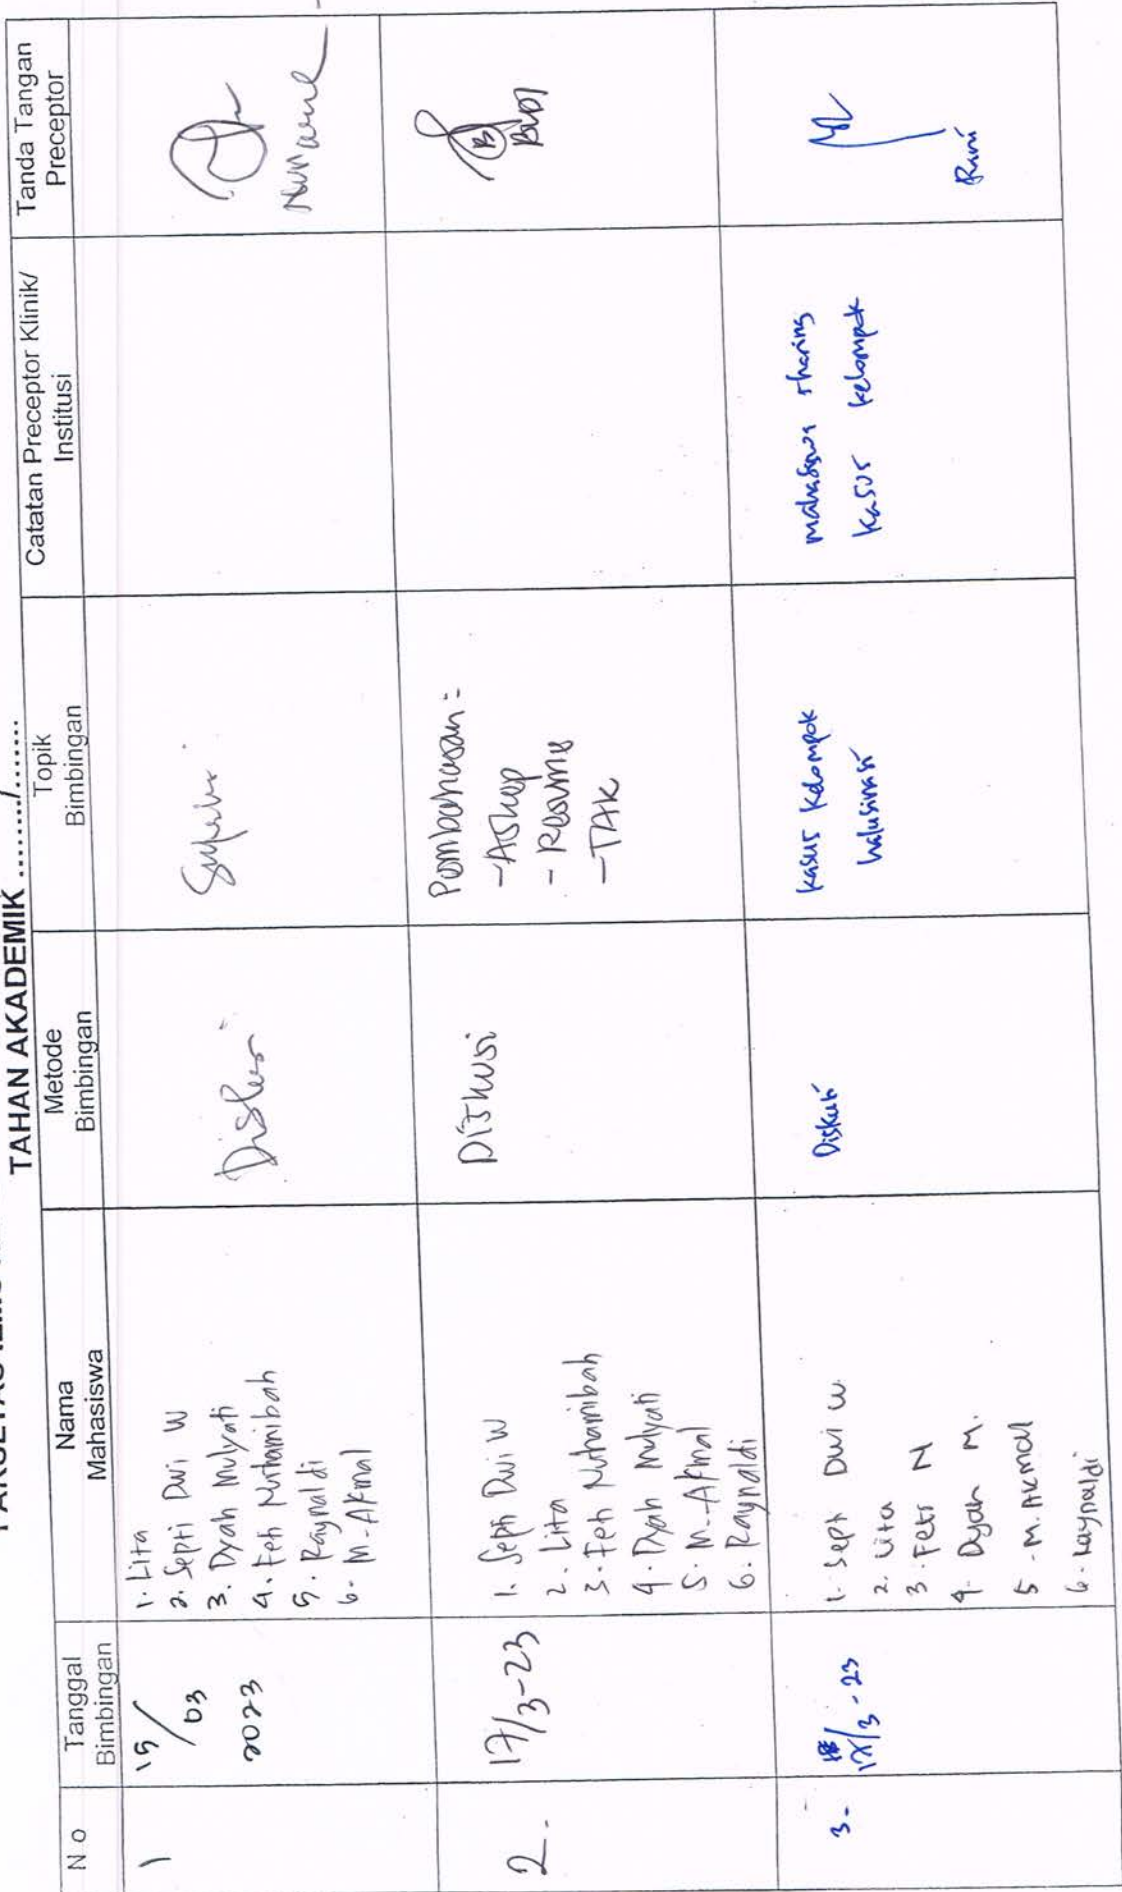 TAHAN AKADEMIK ......../........
N o
Tanggal
Bimbingan
Nama
Mahasiswa
Metode
Bimbingan
Topik
Bimbingan
Catatan Preceptor Klinik/
Institusi
Tanda Tangan
Preceptor
1
15/
03
2023
1. Lita
2. Septi Dwi W
3. Dyah Mulyati
4. Feti Nurhamibah
5. Raynaldi
6. M. Akmal
2.
17/3-23
1. Septi Dwi W
2. Lita
3. Feti Nurhamibah
4. Dyah Mulyati
5. M. Akmal
6. Raynaldi
Diskusi
Pembahasan :
- Askep
- Resume
- TAK
3.
/3 - 23
1. Septi Dwi W.
2. Lita
3. Feti N
4. Dyah M.
5. M. Akmal
6. Raynaldi
Diskusi
Kasus Kelompok
halusinasi
mahasiswa sharing
kasus kelompok
Rini